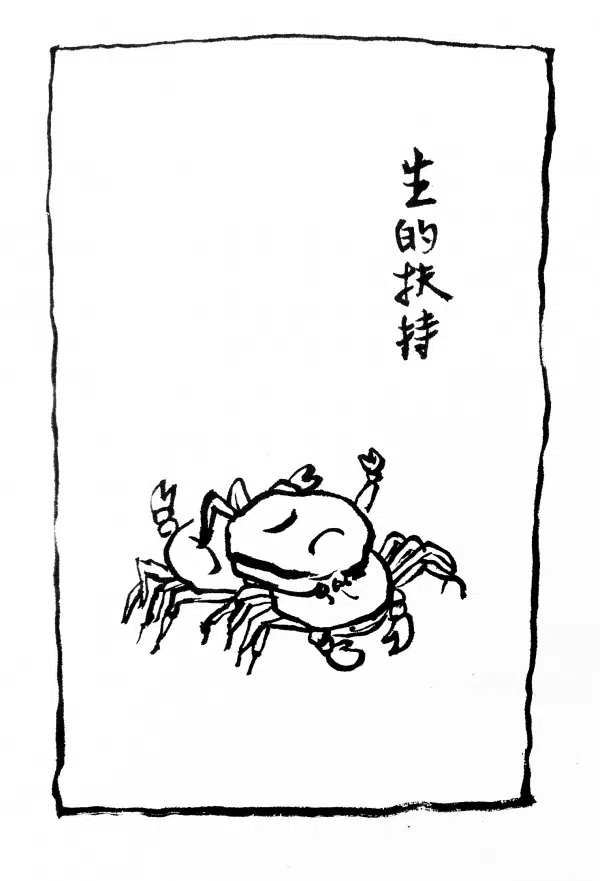 生的扶持